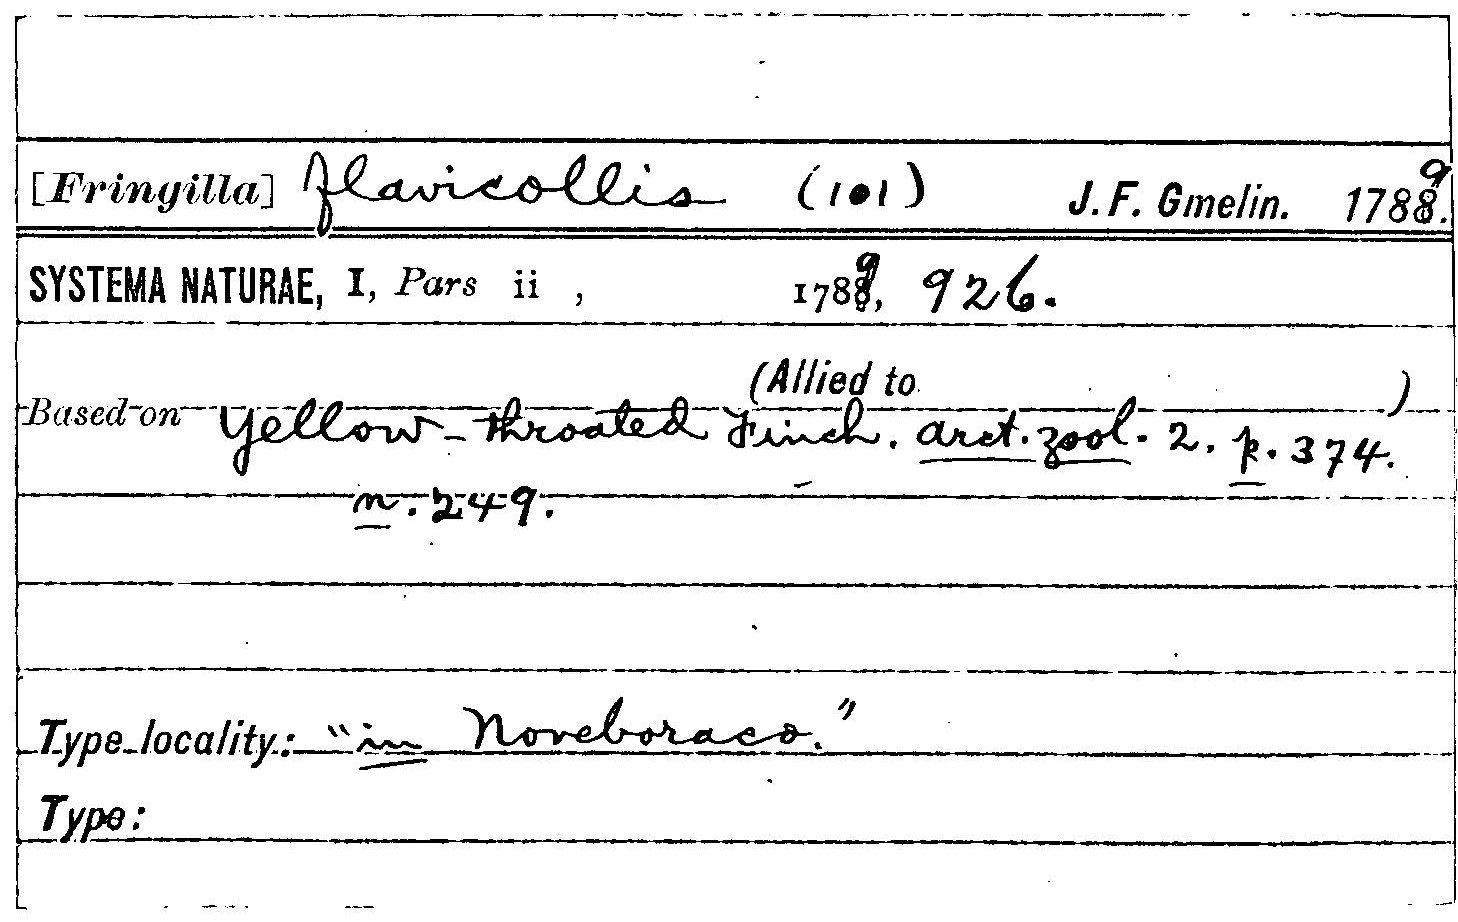 [Fringilla] flavicollis (101) J. F. Gmelin. 1789.
SYSTEMA NATURAE, I, Pars ii , 1789, 926.
(Allied to )
Based on Yellow-throated Finch. arct. zool. 2. p. 374.
n. 249.
Type locality: "in Noveboraco."
Type: